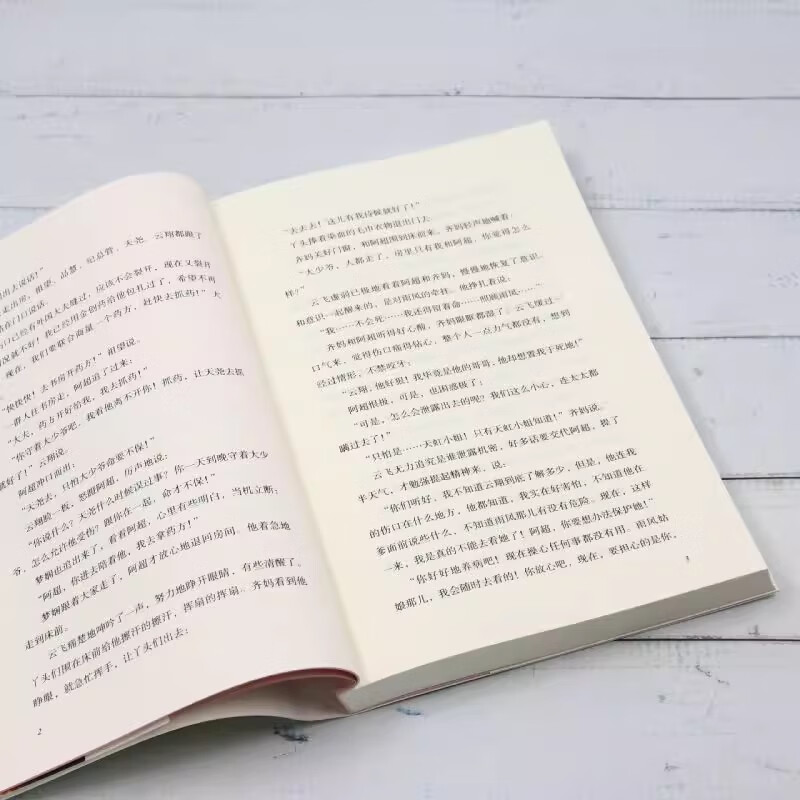 出去说话！”
走出房，祖望、品慧、纪总管、天尧、云翔都跟
在门口说话。
口已经有外国大夫缝过，应该不会裂开，现在又裂开
情况就不好！我已经用金创药给他包扎过了，希望不再
现在，我们要联合商量一个药方，赶快去抓药！”大
“快快快！去书房开药方！”祖望说。
一群人往书房走，阿超追了过来：
“大夫，药方开好给我，我去抓药！”
“你守着大少爷吧，我看他离不开你！抓药，让天尧去抓
都好了！”云翔说。
阿超冲口而出：
“天尧去，只怕大少爷命要不保！”
云翔脸一板，怒瞪阿超，厉声地说：
“你说什么？天尧什么时候误过事？你一天到晚守着大少
爷，怎么允许他受伤？跟你在一起，命才不保！”
梦娴也追出来了，看看阿超，心里有些明白，当机立断：
“阿超，你进去陪着他，我去拿药方！”
梦娴跟着大家走了，阿超才放心地退回房间。他着急地
走到床前。
云飞痛楚地呻吟了一声，努力地睁开眼睛，有些清醒了。
丫头们围在床前给他擦汗的擦汗，挥扇的挥扇。齐妈看到他
睁眼，就急忙挥手，让丫头们出去：
2
“去去去！这儿有我侍候就好了！”
丫头捧着染血的毛巾衣物退出门去。
齐妈关好门窗，和阿超围到床前来。齐妈轻声地喊着：
“大少爷，人都走了，房里只有我和阿超，你觉得怎么
样？”
云飞虚弱已极地看着阿超和齐妈，慢慢地恢复了意识。
和意识一起醒来的，是对雨凤的牵挂。他挣扎着说：
“我……不会死……我还得留着命……照顾雨凤……”
齐妈和阿超听得好心酸，齐妈眼眶都湿了。云飞缓过一
口气来，觉得伤口痛得钻心，整个人一点力气都没有，想到
经过情形，不禁咬牙：
“云翔，他好狠！我毕竟是他的哥哥，他却想置我于死地！”
阿超恨极，可是，也困惑极了：
“可是，怎么会泄露出去的呢？我们这么小心，连太太都
瞒过去了！”
“只怕是……天虹小姐！只有天虹小姐知道！”齐妈说。
云飞无力追究是谁泄露机密，好多话要交代阿超，提了
半天气，才勉强振起精神来，说：
“你们听好，我不知道云翔到底了解多少，但是，他连我
的伤口在什么地方，他都知道，我实在好害怕，不知道他在
爹面前说些什么，不知道雨凤那儿有没有危险。现在，这样
一来，我是真的不能去看她了！阿超，你要想办法保护她！”
“你好好地养病吧！现在操心任何事都没有用。雨凤姑
娘那儿，我会随时去看的！你放心吧。现在，要担心的是你，
3